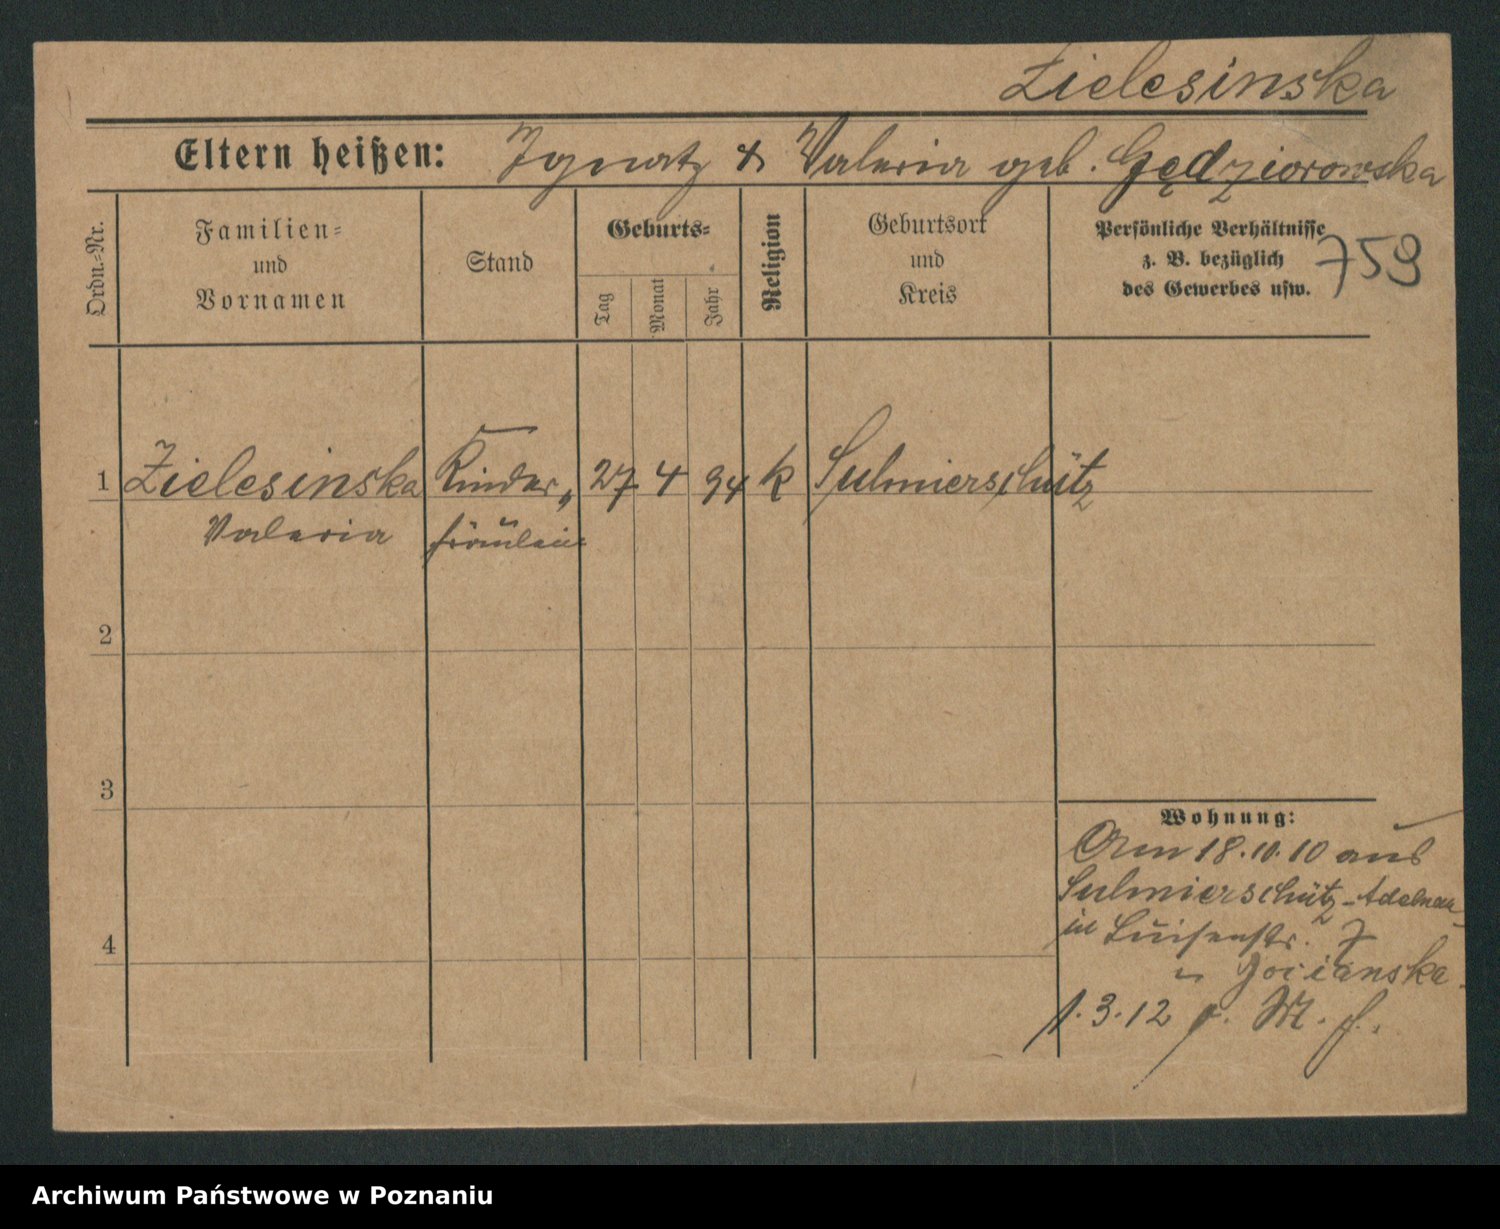 Zielesinska
Eltern heißen: Ignatz & Valeria geb. Gędziorowska
Ordn.-Nr.
Familien-
und
Vornamen
Stand
Geburts-
Tag
Monat
Jahr
Religion
Geburtsort
und
Kreis
Persönliche Verhältnisse
z. B. bezüglich
des Gewerbes usw.
759
1 Zielesinska Kinder- 27 4 94 k Sulmierschütz
Valeria fräulein
2
3
4
Wohnung:
Am 18.10.10 aus
Sulmierschütz-Adelnau
in Luisenstr. 7
1.3.12
Archiwum Państwowe w Poznaniu